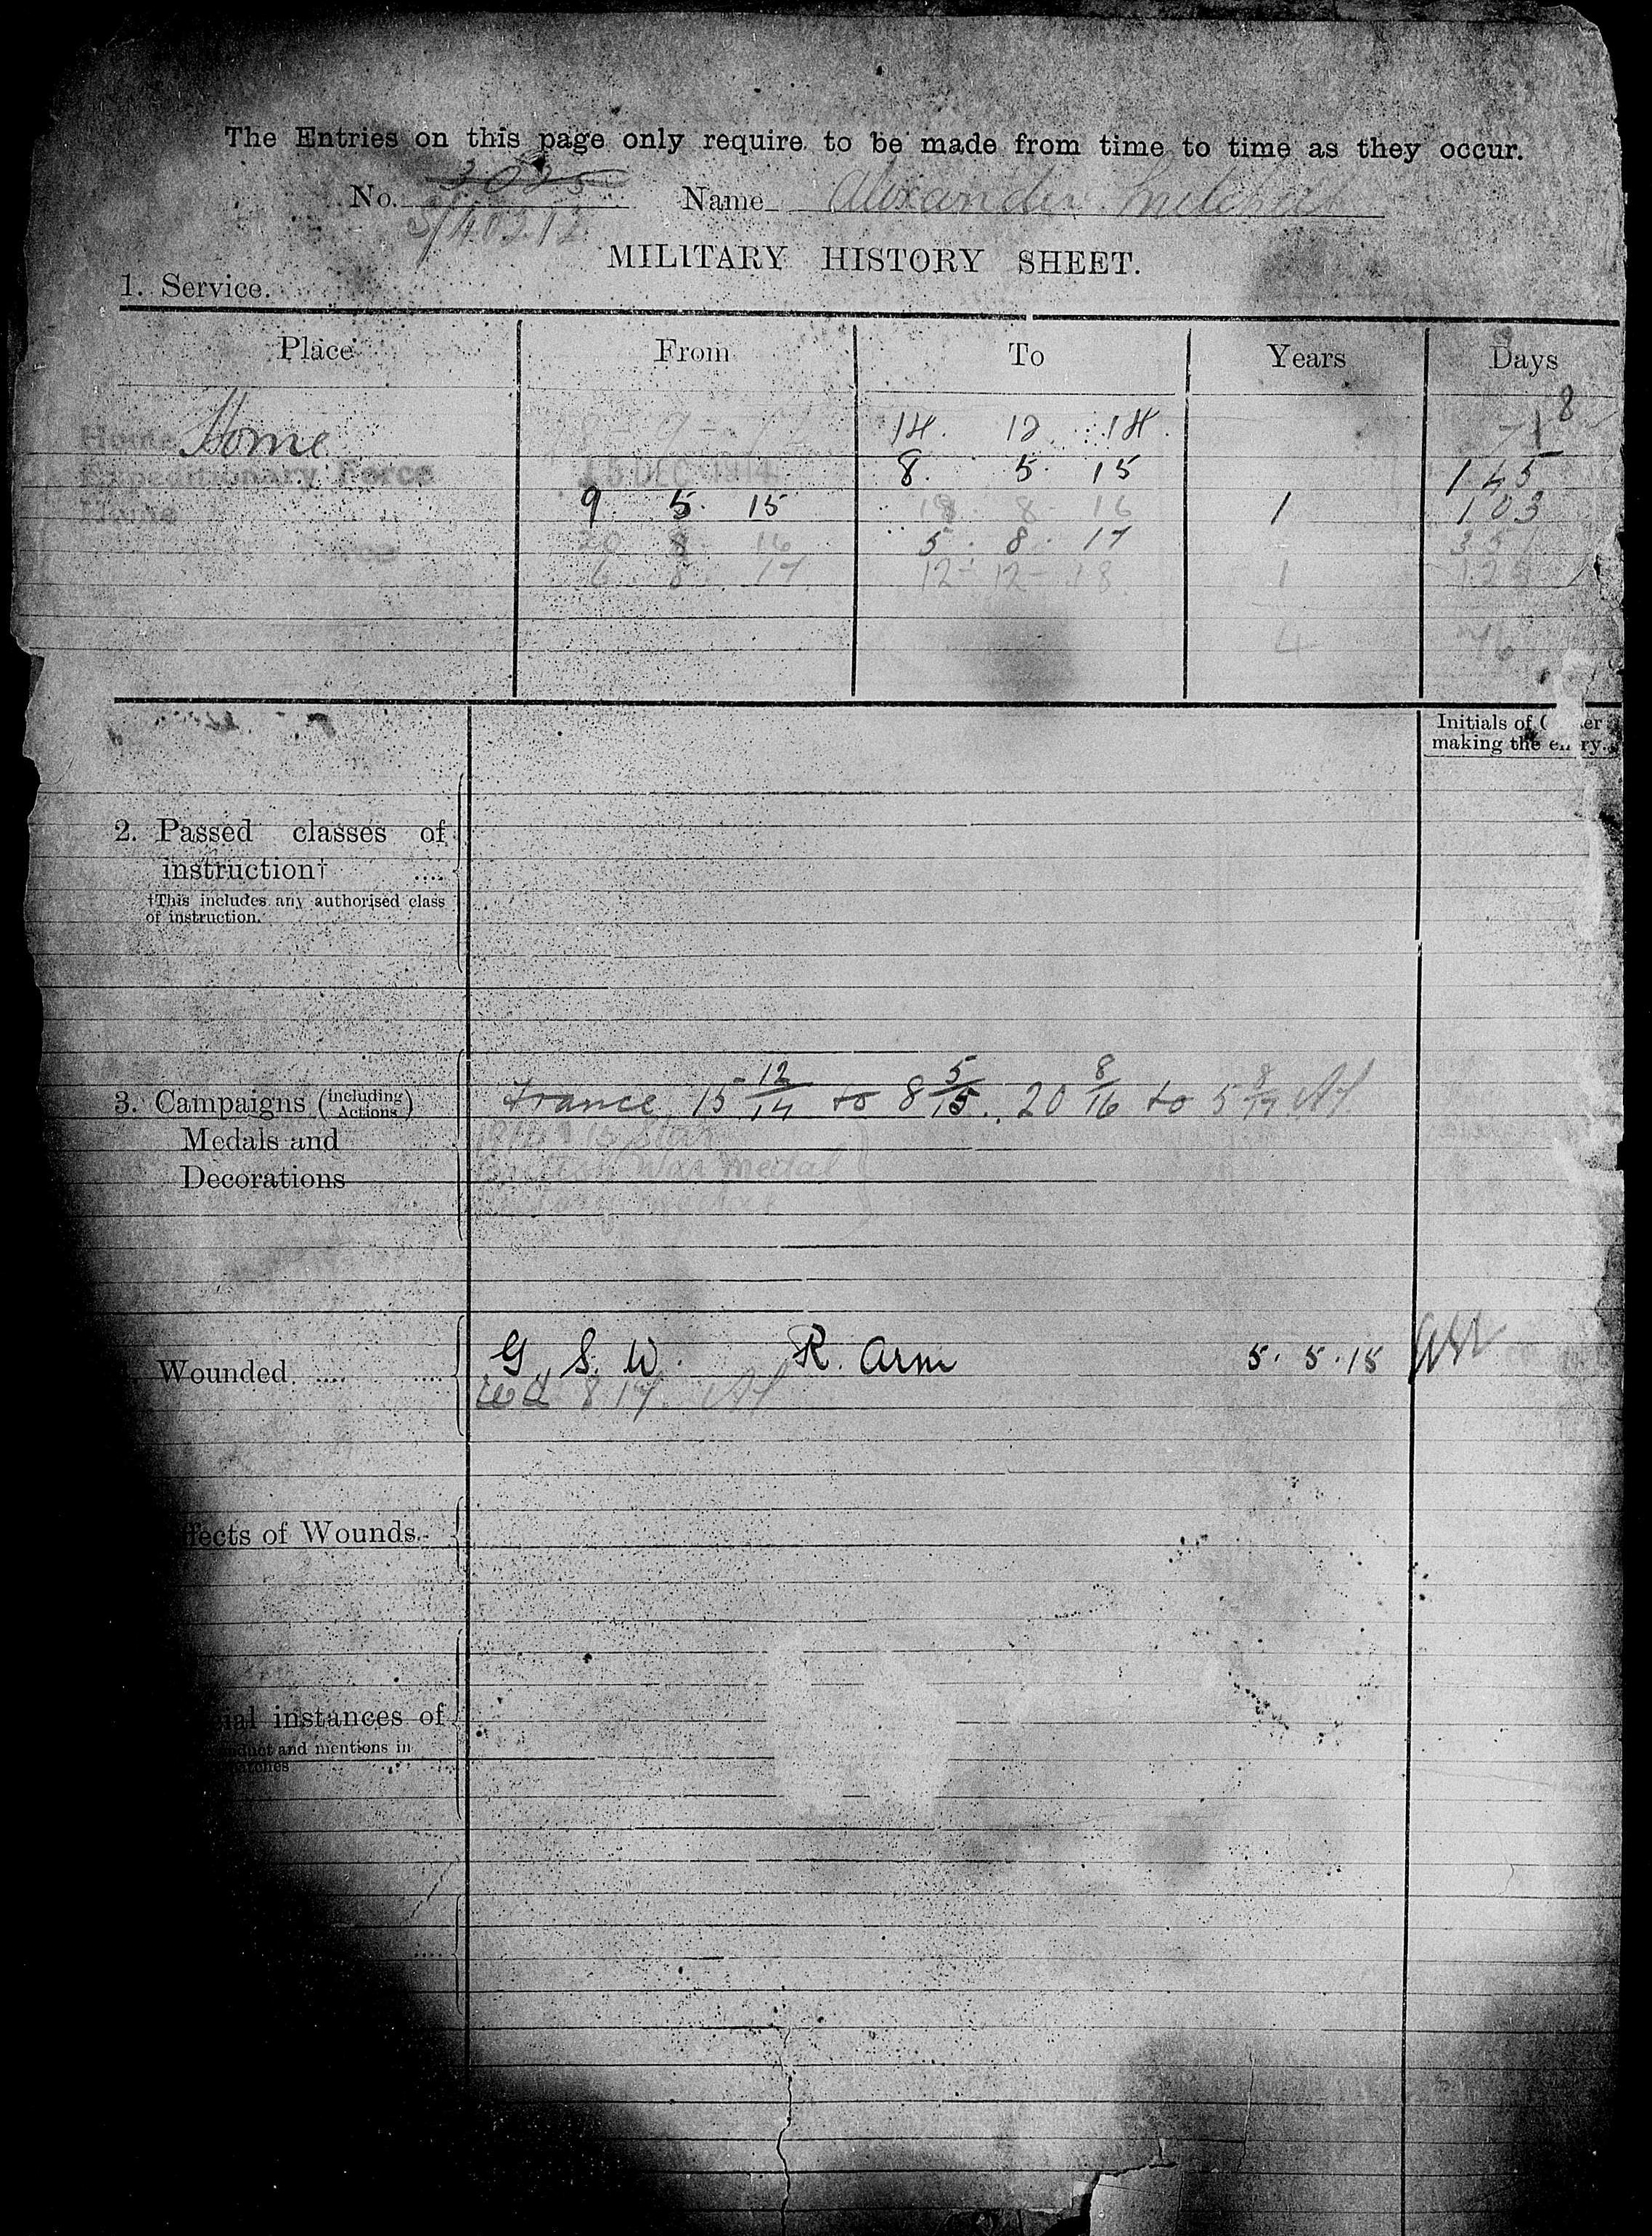 The Entries on this page only require to be made from time to time as they occur.
No. 3025 Name Alexander Mitchell
S/40212
MILITARY HISTORY SHEET.
1. Service.
Place From To Years Days
Home Home 14. 12. 14. 78
Expeditionary Force 15 DEC 1914 8. 5. 15 145
Home 9 5. 15 19. 8. 16 1 103
20 8 16 5. 8. 17 351
6 8. 17 12-12-18 1
4 76
Initials of
making the
2. Passed classes of
instruction†
†This includes any authorised class
of instruction.
3. Campaigns (including Actions) France 15 12/14 to 8 5/15. 20 8/16 to 5 8/17
Medals and Star
Decorations British War medal
Wounded .... .... G. S. W. R. Arm 5. 5. 15
8 17.
of Wounds
instances of
and mentions in